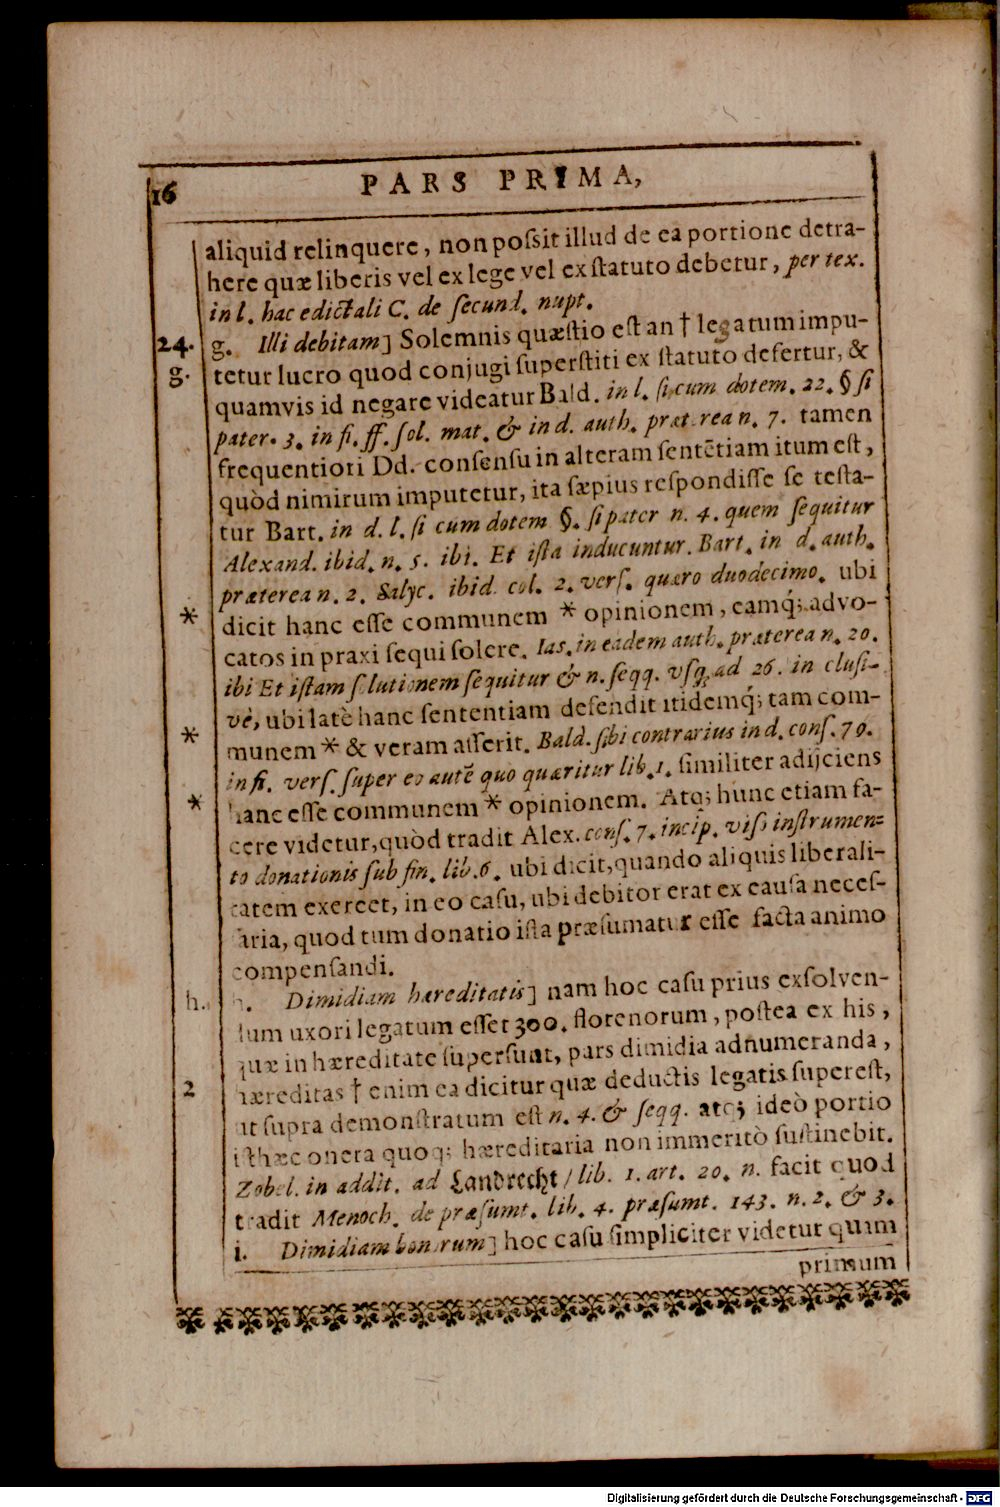 16
PARS PRIMA,
aliquid relinquere, non poſsit illud de ea portione detra-
here quæ liberis vel ex lege vel ex ſtatuto debetur, per tex.
in l. hac edictali C. de ſecund. nupt.
24. g. Illi debitam] Solemnis quæſtio eſt an † legatum impu-
g. tetur lucro quod conjugi ſuperſtiti ex ſtatuto defertur, &
quamvis id negare videatur Bald. in l. ſi cum dotem. 22. § ſi
pater. 3. in fi. ff. ſol. mat. & in d. auth. præterea n. 7. tamen
frequentiori Dd. conſenſu in alteram ſentētiam itum eſt,
quòd nimirum imputetur, ita ſæpius reſpondiſſe ſe teſta-
tur Bart. in d. l. ſi cum dotem §. ſi pater n. 4. quem ſequitur
Alexand. ibid. n. 5. ibi. Et iſta inducuntur. Bart. in d. auth.
præterea n. 2. Salyc. ibid. col. 2. verſ. quæro duodecimo. ubi
* dicit hanc eſſe communem * opinionem, eamq́; advo-
catos in praxi ſequi ſolere. Iaſ. in eadem auth. præterea n. 20.
ibi Et iſtam ſolutionem ſequitur & n. ſeqq. vſq; ad 26. in cluſi-
vè, ubi latè hanc ſententiam defendit itidemq́; tam com-
* munem * & veram aſſerit. Bald. ſibi contrarius in d. conſ. 70.
in fi. verſ. ſuper eo autē quo quæritur lib. 1. ſimiliter adijciens
* hanc eſſe communem * opinionem. Atq; hunc etiam fa-
cere videtur, quòd tradit Alex. conſ. 7. incip. viſo inſtrumen-
to donationis ſub fin. lib. 6. ubi dicit, quando aliquis liberali-
tatem exercet, in eo caſu, ubi debitor erat ex cauſa neceſ-
ſaria, quod tum donatio iſta præſumatur eſſe facta animo
compenſandi.
h. h. Dimidiam hæreditatis] nam hoc caſu prius exſolven-
dum uxori legatum eſſet 300. florenorum, poſtea ex his,
quæ in hæreditate ſuperſunt, pars dimidia adnumeranda,
2 hæreditas † enim ea dicitur quæ deductis legatis ſupereſt,
ut ſupra demonſtratum eſt n. 4. & ſeqq. atq; ideò portio
iſthæc onera quoq; hæreditaria non immeritò ſuſtinebit.
Zobel. in addit. ad Landrecht / lib. 1. art. 20. n. facit quod
tradit Menoch. de præſumt. lib. 4. præſumt. 143. n. 2. & 3.
i. Dimidiam bonorum] hoc caſu ſimpliciter videtur quam
primum
Digitalisierung gefördert durch die Deutsche Forschungsgemeinschaft - DFG